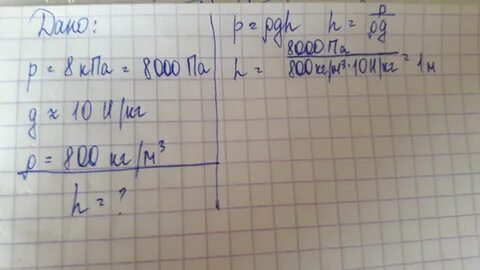 Дано:
p = 8 кПа = 8000 Па
g ≈ 10 Н/кг
ρ = 800 кг/м³
h = ?
p = ρgh h = p/ρg
h = 8000 Па / 800 кг/м³ · 10 Н/кг = 1 м